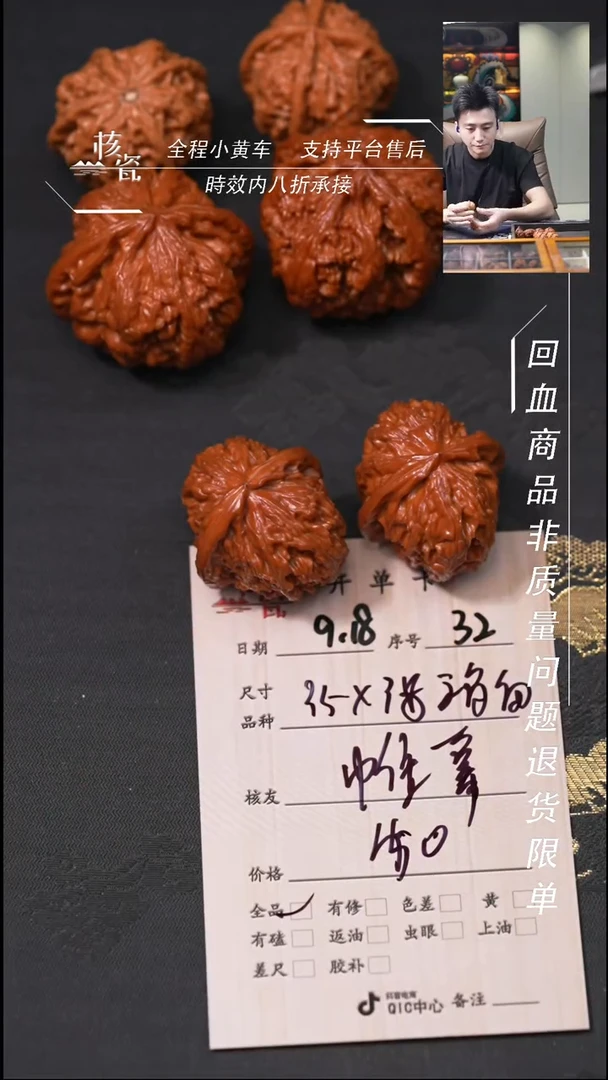 核瓷
全程小黄车 支持平台售后
時效内八折承接
回血商品非质量问题退货限单
开单卡
日期 9.18 序号 32
尺寸
品种
核友
价格
全品 有修 色差 黄
有磕 返油 虫眼 上油
差尺 胶补
抖音电商
QIC中心 备注